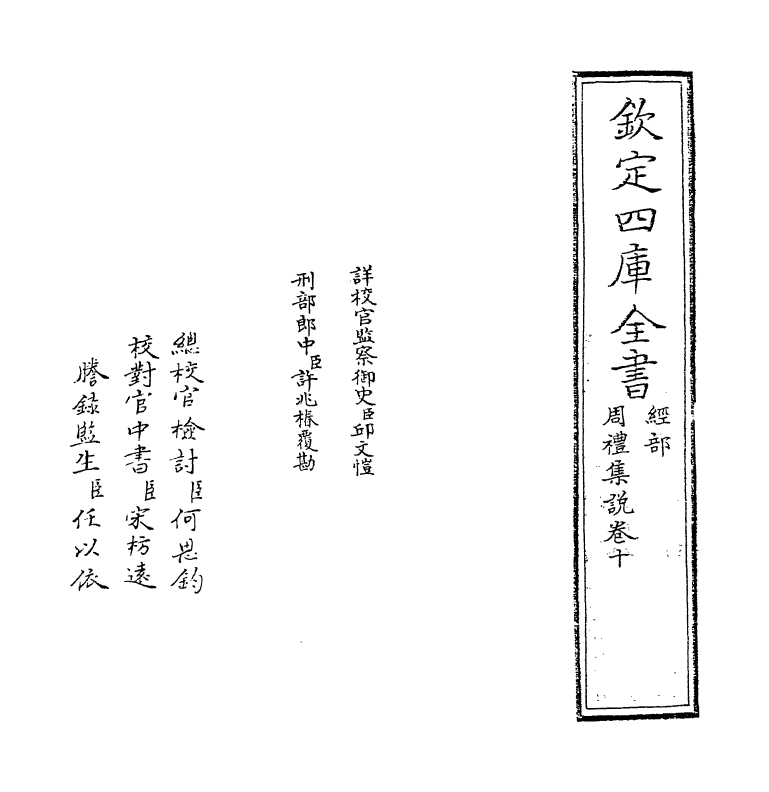 欽定四庫全書
經部
周禮集説卷十
詳校官監察御史臣邱文愷
刑部郎中臣許兆椿覆勘
總校官檢討臣何思鈞
校對官中書臣宋枋遠
謄録監生臣任以依